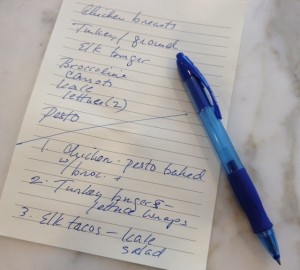 Chicken breasts
Turkey / ground
Elk burger
Broccoline
carrots
kale
lettuce (2)
Pesto
1. Chicken - pesto baked
w/ broc.
2. Turkey burgers -
lettuce wraps
3. Elk tacos - kale
salad